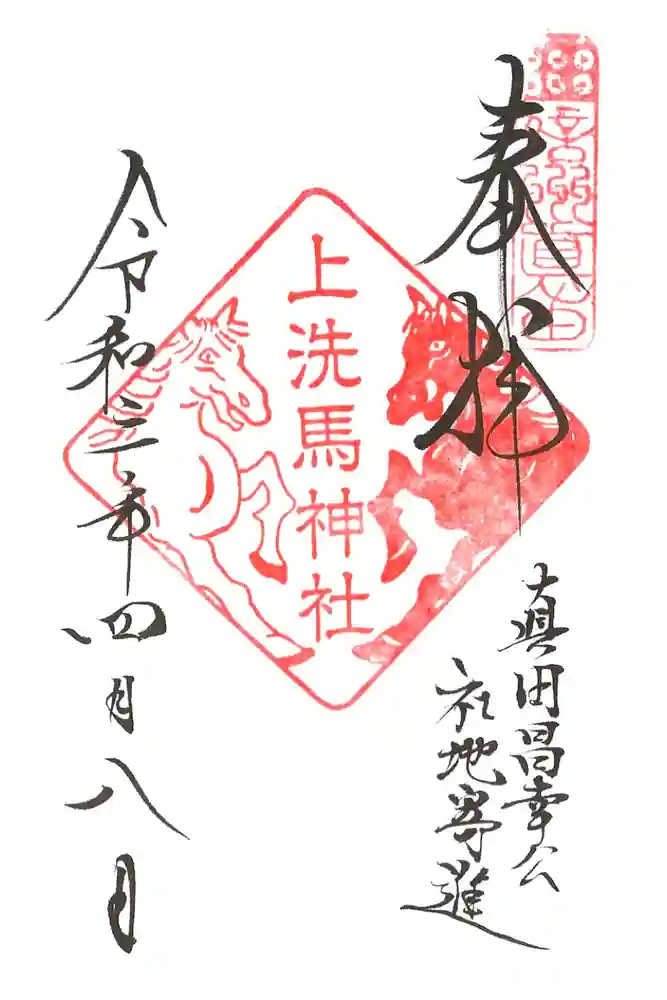 奉拝
真田昌幸公
社地寄進
上洗馬神社
令和三年四月八日